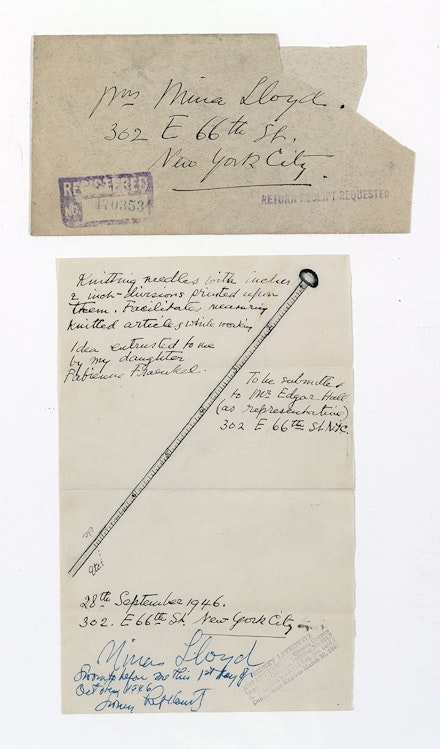 Mrs Mina Lloyd.
302 E 66th St.
New York City.
REGISTERED
NO. 170353
RETURN RECEIPT REQUESTED
Knitting needles with inches
& inch-divisions printed upon
them. Facilitates measuring
Knitted articles while working
Idea entrusted to me
by my daughter
Fabienne Fraenkel.
To be submitted
to Mr Edgar Hall
(as representative)
302 E 66th St. N.Y.C.
etc
etc:
28th September 1946.
302. E 66th St. New York City
Mina Lloyd
Sworn to before me this 1st day of
October 1946